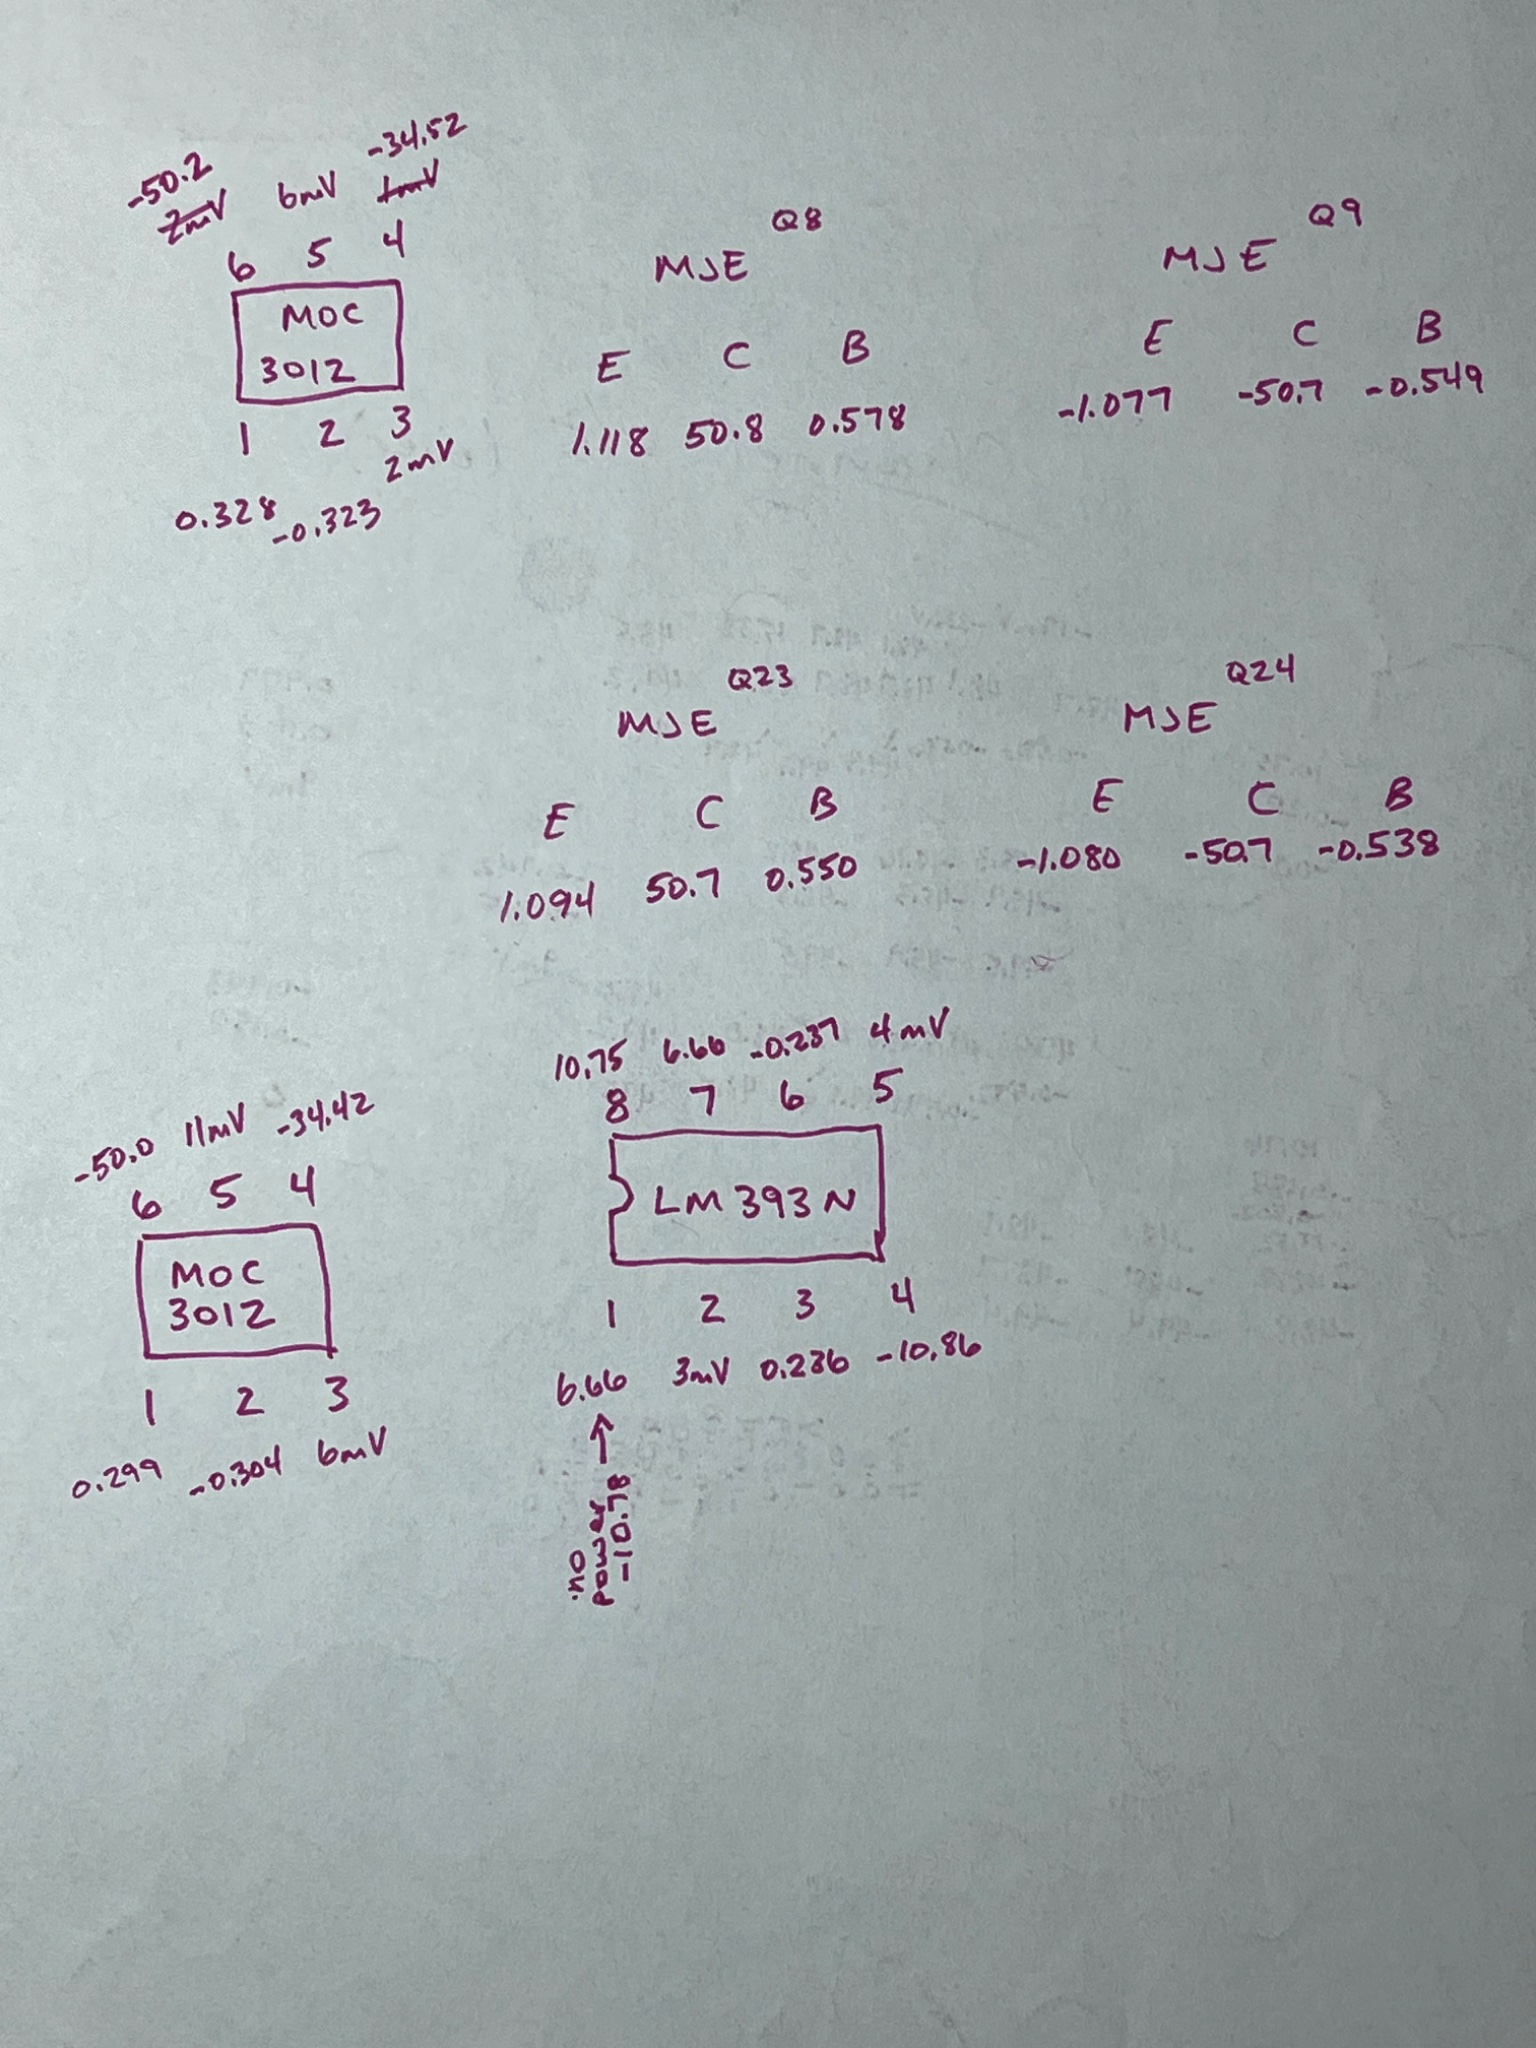 -50.2 6mV -34.52
2mV 1mV
6 5 4
MOC
3012
1 2 3
2mV
0.328 -0.323
Q8
MJE
E C B
1.118 50.8 0.578
Q9
MJE
E C B
-1.077 -50.7 -0.549
Q23
MJE
E C B
1.094 50.7 0.550
Q24
MJE
E C B
-1.080 -50.7 -0.538
-50.0 11mV -34.42
6 5 4
MOC
3012
1 2 3
0.299 -0.304 6mV
10.75 6.66 -0.237 4mV
8 7 6 5
LM393N
1 2 3 4
6.66 3mV 0.236 -10.86
no
power
-10.78 →